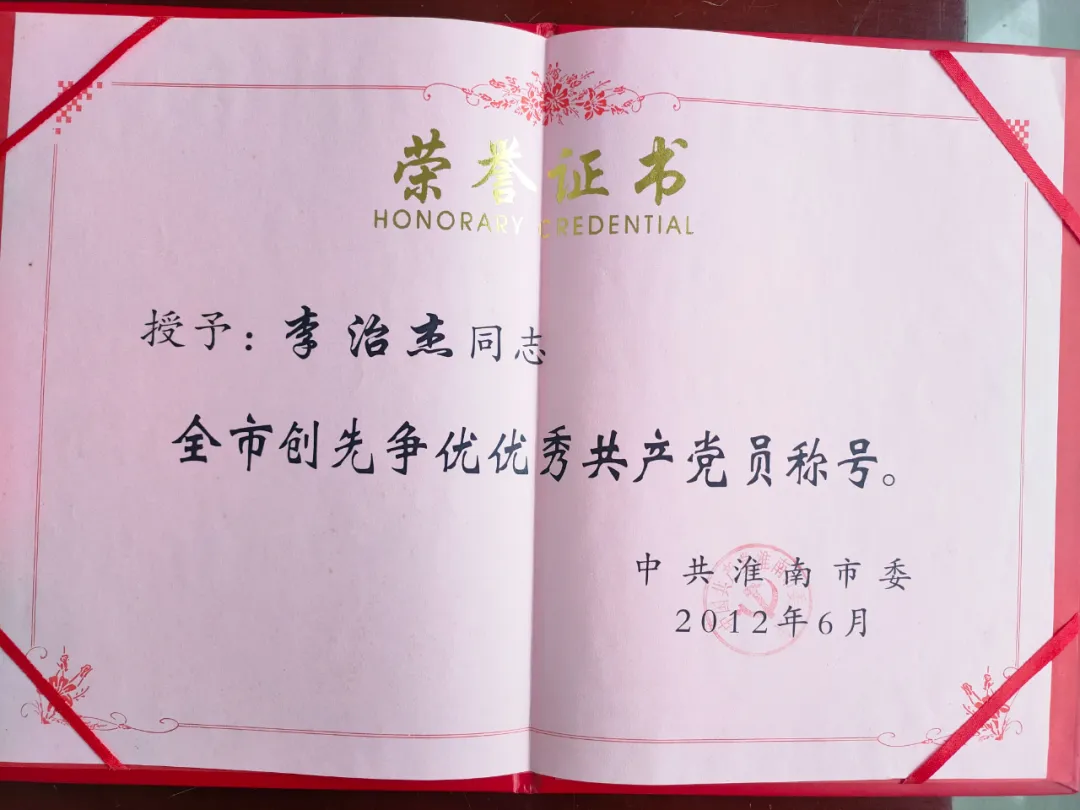 荣誉证书
HONORARY CREDENTIAL
授予：李治杰同志
全市创先争优优秀共产党员称号。
中共淮南市委
2012年6月